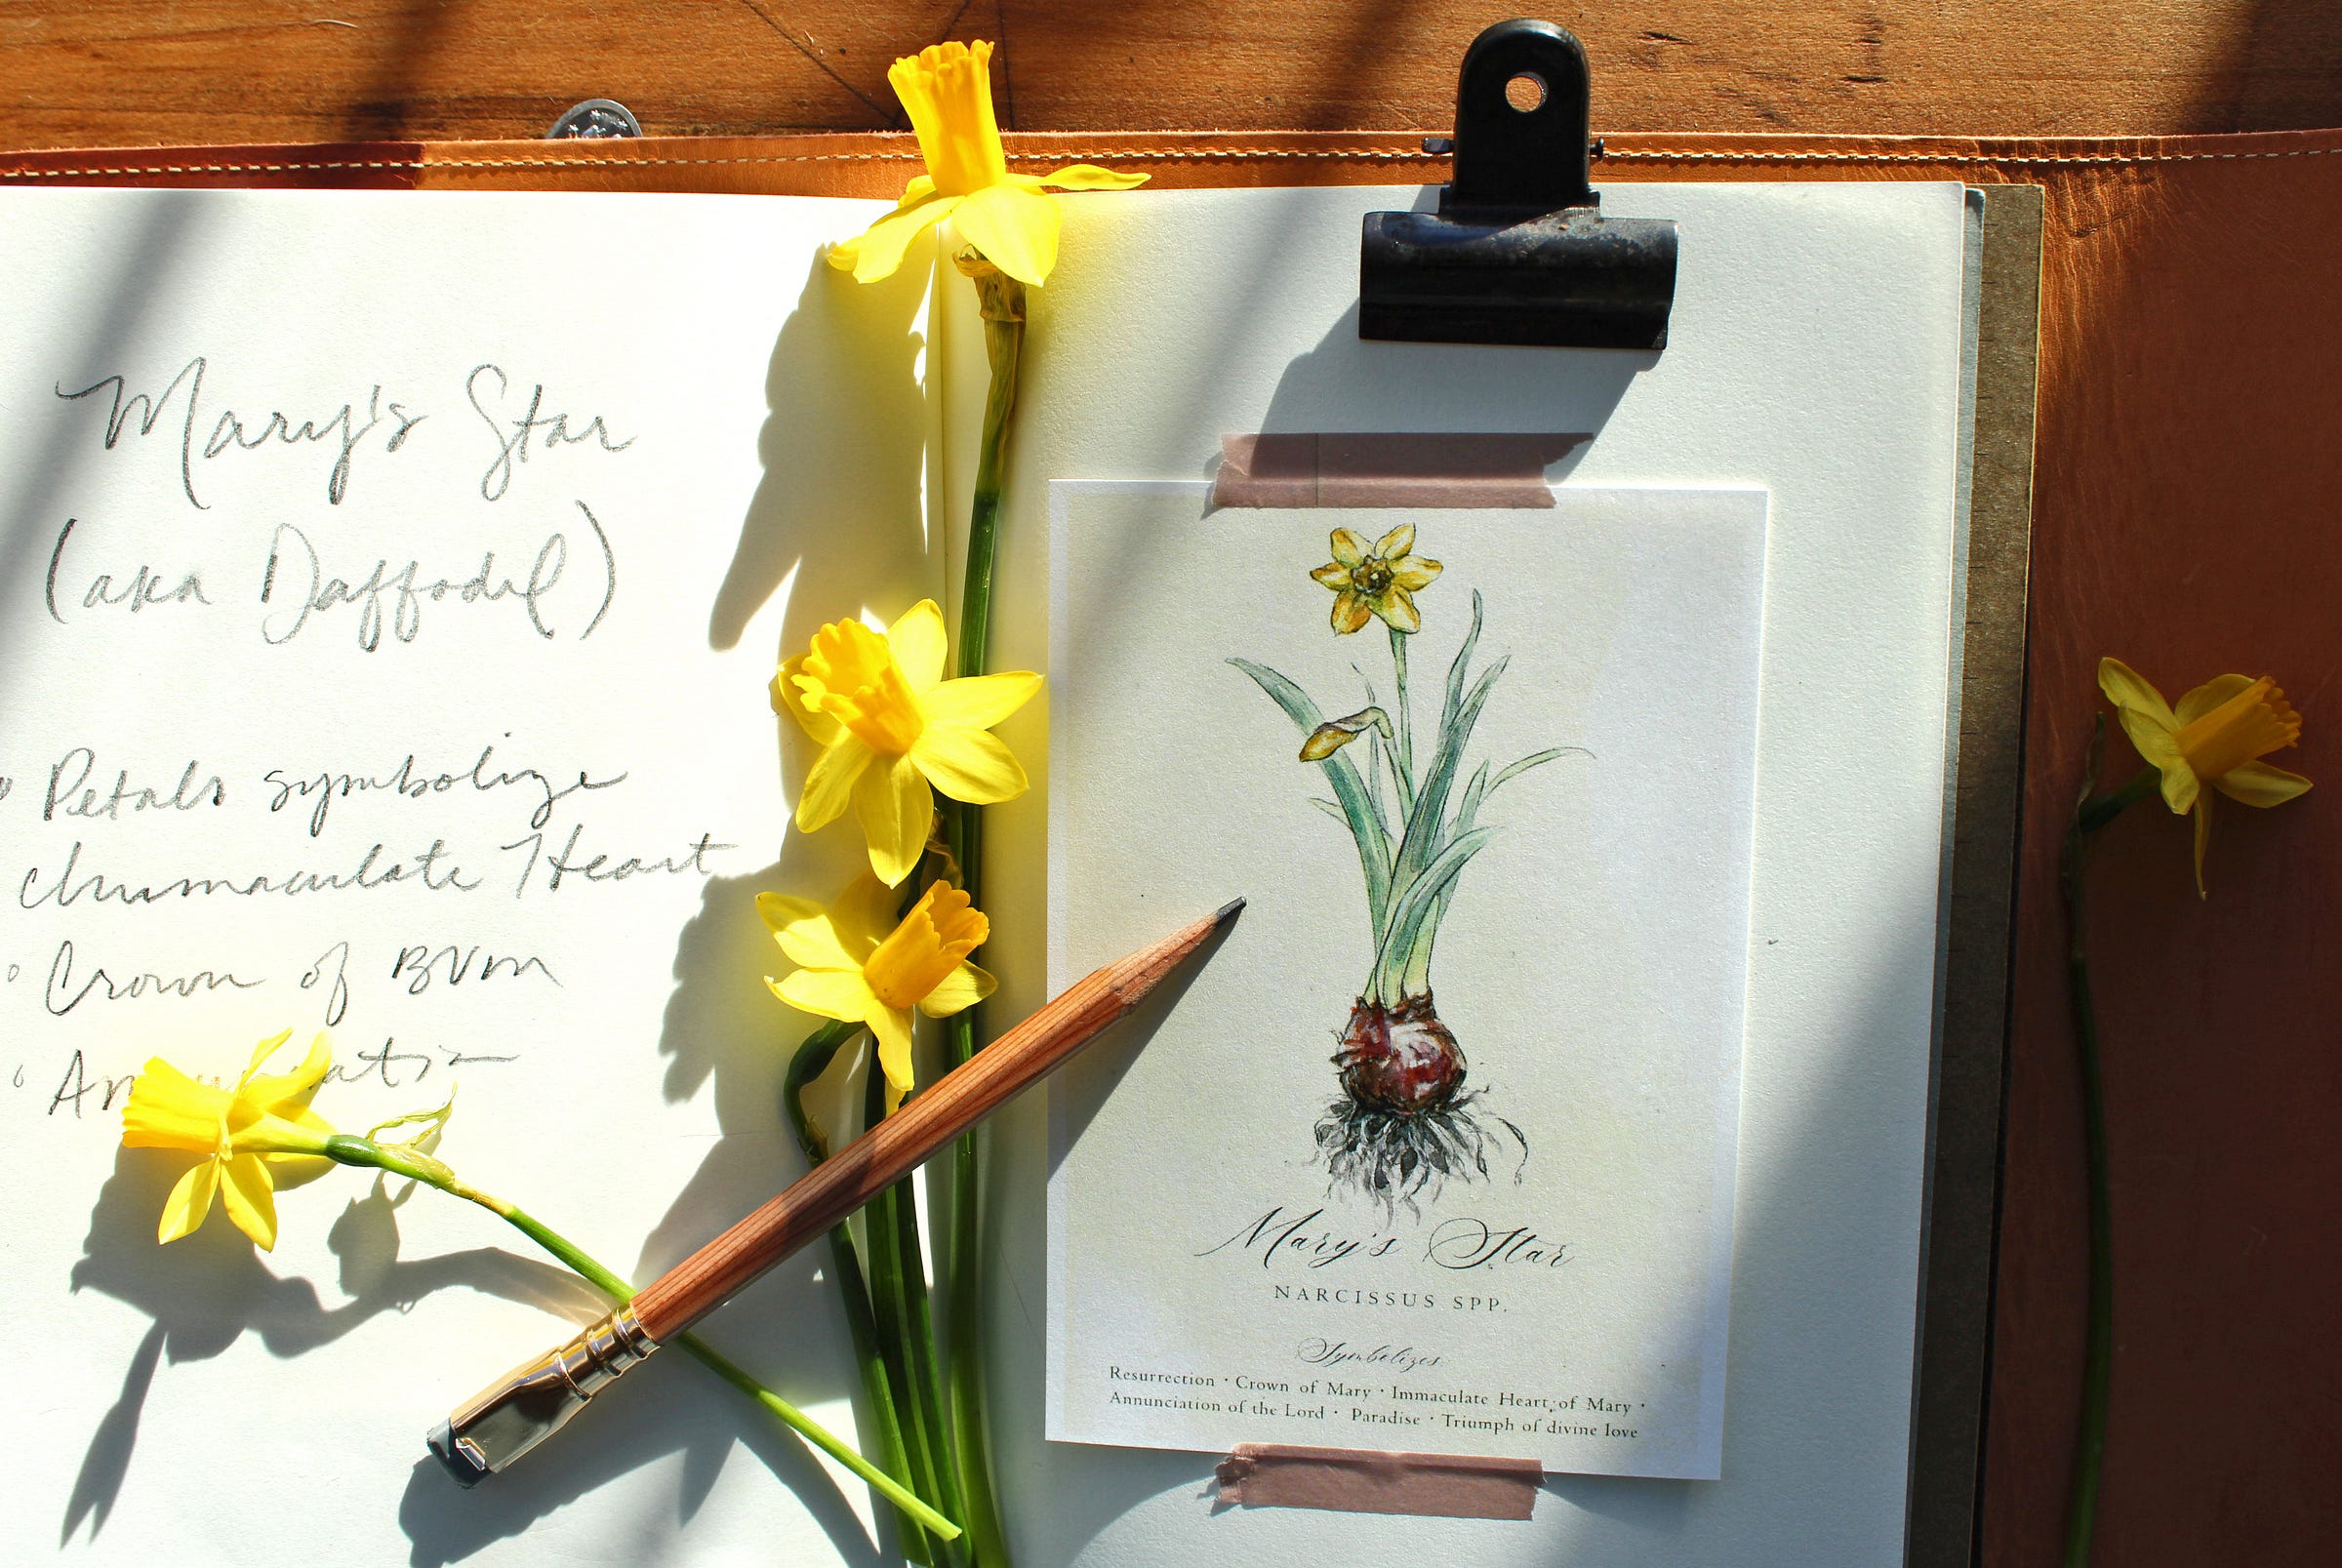 Mary's Star
(aka Daffodil)
Petals symbolize
Immaculate Heart
Crown of BVM
Mary's Star
NARCISSUS SPP.
Symbolizes
Resurrection · Crown of Mary · Immaculate Heart of Mary ·
Annunciation of the Lord · Paradise · Triumph of divine love